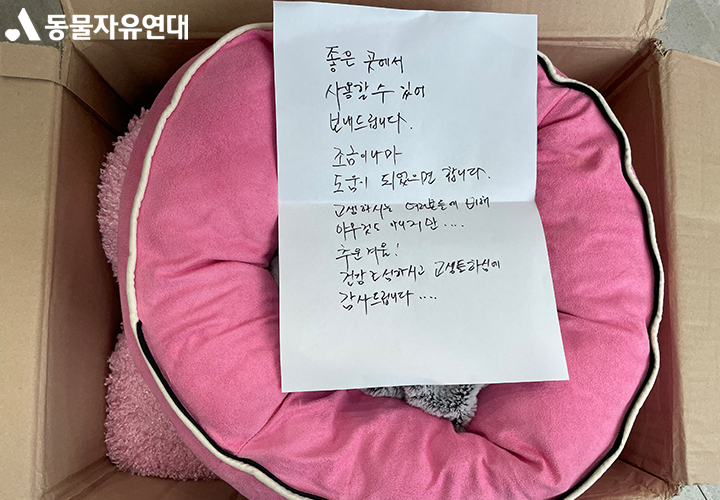 동물자유연대
좋은 곳에서
사용할 수 있어
보내드립니다.
조금이나마
도움이 되었으면 합니다.
고생하시는 여러분들에 비해
아무것도 아니지만....
추운겨울!
건강조심하시고 고생많하심에
감사드립니다....